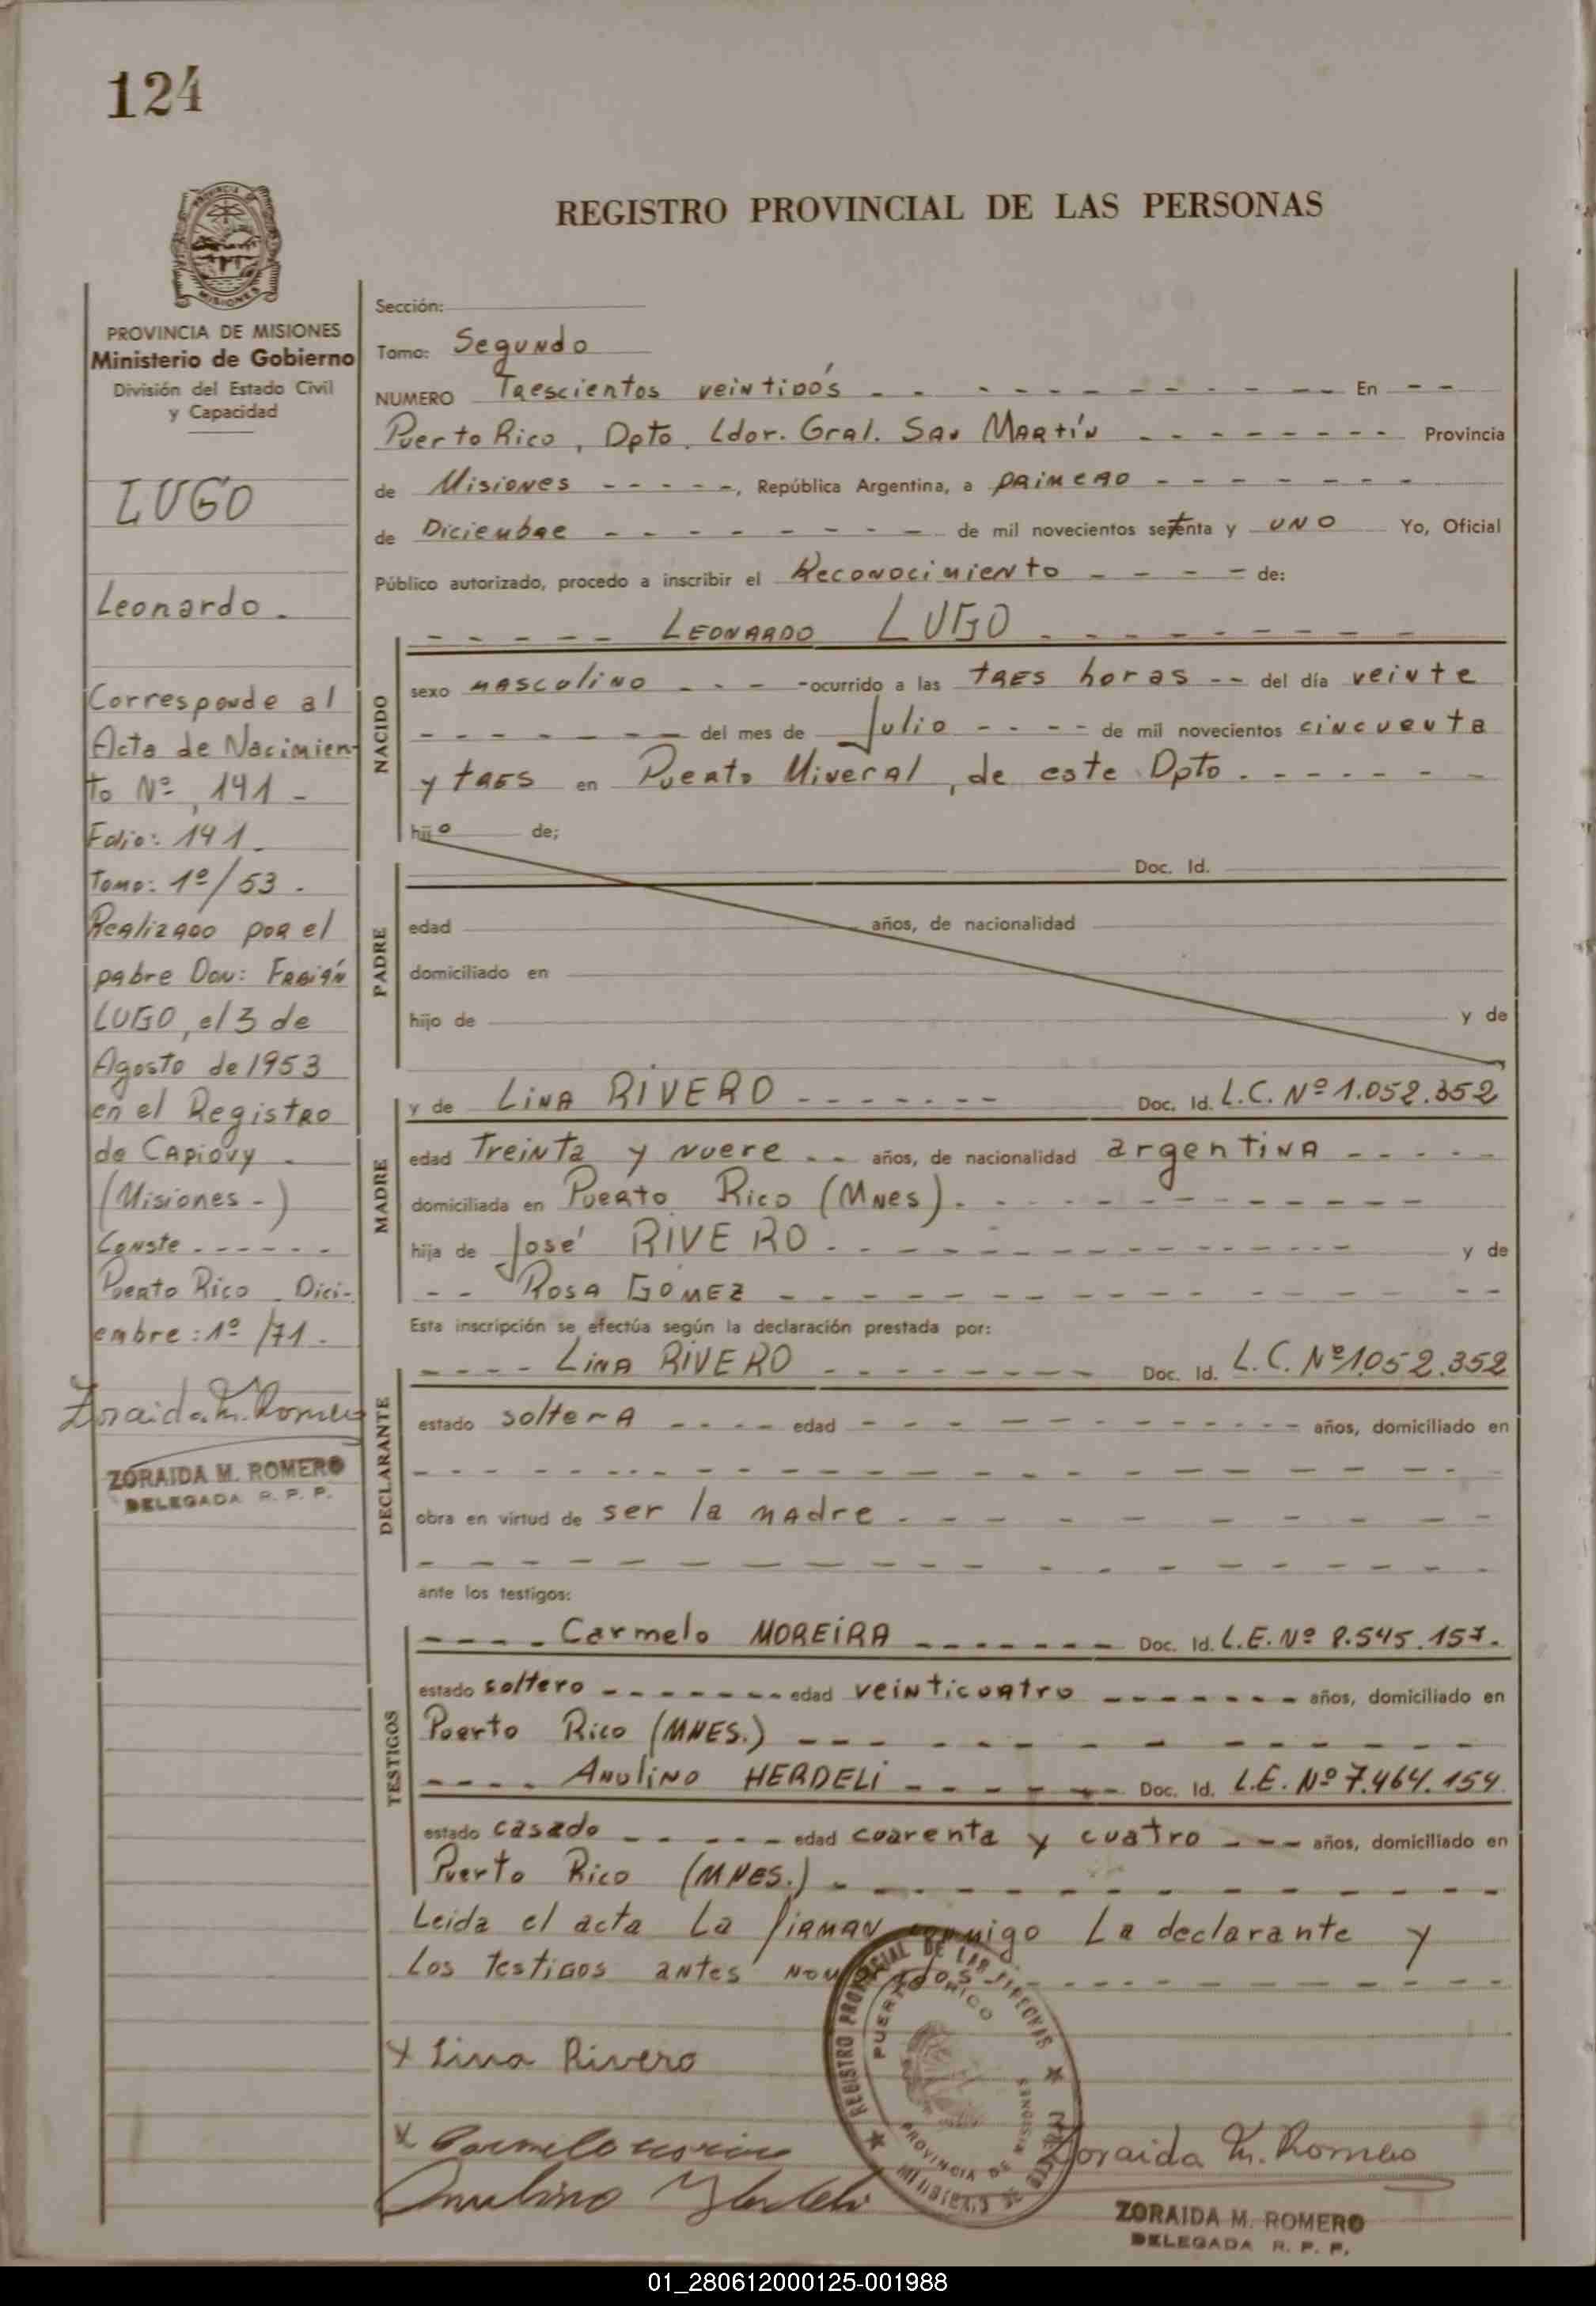 124
REGISTRO PROVINCIAL DE LAS PERSONAS
PROVINCIA DE MISIONES
Ministerio de Gobierno
División del Estado Civil
y Capacidad
LUGO
Leonardo -
Corresponde al
Acta de Nacimien-
to Nº 141 -
Folio: 141.
Tomo: 1º/53.
Realizado por el
padre Don: Fabián
LUGO, el 3 de
Agosto de 1953
en el Registro
de Capiovy -
(Misiones -)
Conste - - - - - -
Puerto Rico Dici-
embre: 1º /71.
Zoraida M. Romero
ZORAIDA M. ROMERO
DELEGADA R. P. P.
Sección:
Tomo: Segundo
NUMERO Trescientos veintidós - - - En - -
Puerto Rico, Dpto. Ldor. Gral. San Martín - - - Provincia
de Misiones - - - - -, República Argentina, a primero - - -
de Diciembre - - - de mil novecientos setenta y uno Yo, Oficial
Público autorizado, procedo a inscribir el Reconocimiento - - - - de:
- - - - - Leonardo LUGO - - -
NACIDO
sexo masculino - - - - ocurrido a las tres horas - - del día veinte
- - - del mes de Julio - - - - de mil novecientos cincuenta
y tres en Puerto Mineral, de este Dpto. - - -
hijo de;
PADRE
Doc. Id.
edad años, de nacionalidad
domiciliado en
hijo de y de
MADRE
y de Lina RIVERO - - - Doc. Id. L.C. Nº 1.052.352
edad Treinta y nueve - - años, de nacionalidad argentina - - -
domiciliada en Puerto Rico (Mnes). - - -
hija de José RIVERO - - - y de
- - Rosa GOMEZ - - -
Esta inscripción se efectúa según la declaración prestada por:
DECLARANTE
- - - - Lina RIVERO - - - Doc. Id. L.C. Nº 1.052.352
estado soltera - - - - edad - - - años, domiciliado en
- - -
obra en virtud de ser la madre - - -
- - -
ante los testigos:
TESTIGOS
- - - - Carmelo MOREIRA - - - Doc. Id. L.E. Nº 8.545.157.
estado soltero - - - edad veinticuatro - - - años, domiciliado en
Puerto Rico (MNES.) - - -
- - - - Anulino HERDELI - - - Doc. Id. L.E. Nº 7.464.154
estado casado - - - edad cuarenta y cuatro - - - años, domiciliado en
Puerto Rico (MNES.) - - -
Leida el acta La firman conmigo La declarante y
Los testigos antes nombrados - - -
REGISTRO PROVINCIAL DE LAS PERSONAS
PUERTO RICO
PROVINCIA DE MISIONES
x Lina Rivero
x Carmelo
Anulino Herdeli
Zoraida M. Romero
ZORAIDA M. ROMERO
DELEGADA R. P. P.
01_280612000125-001988